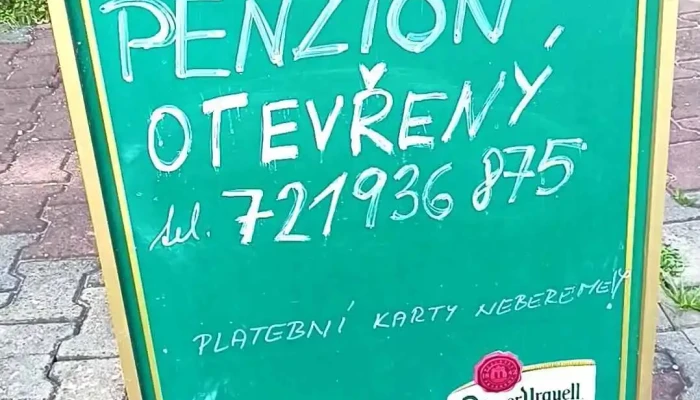 PENZION
OTEVŘENÝ
tel. 721936875
PLATEBNÍ KARTY NEBEREME!
Urquell